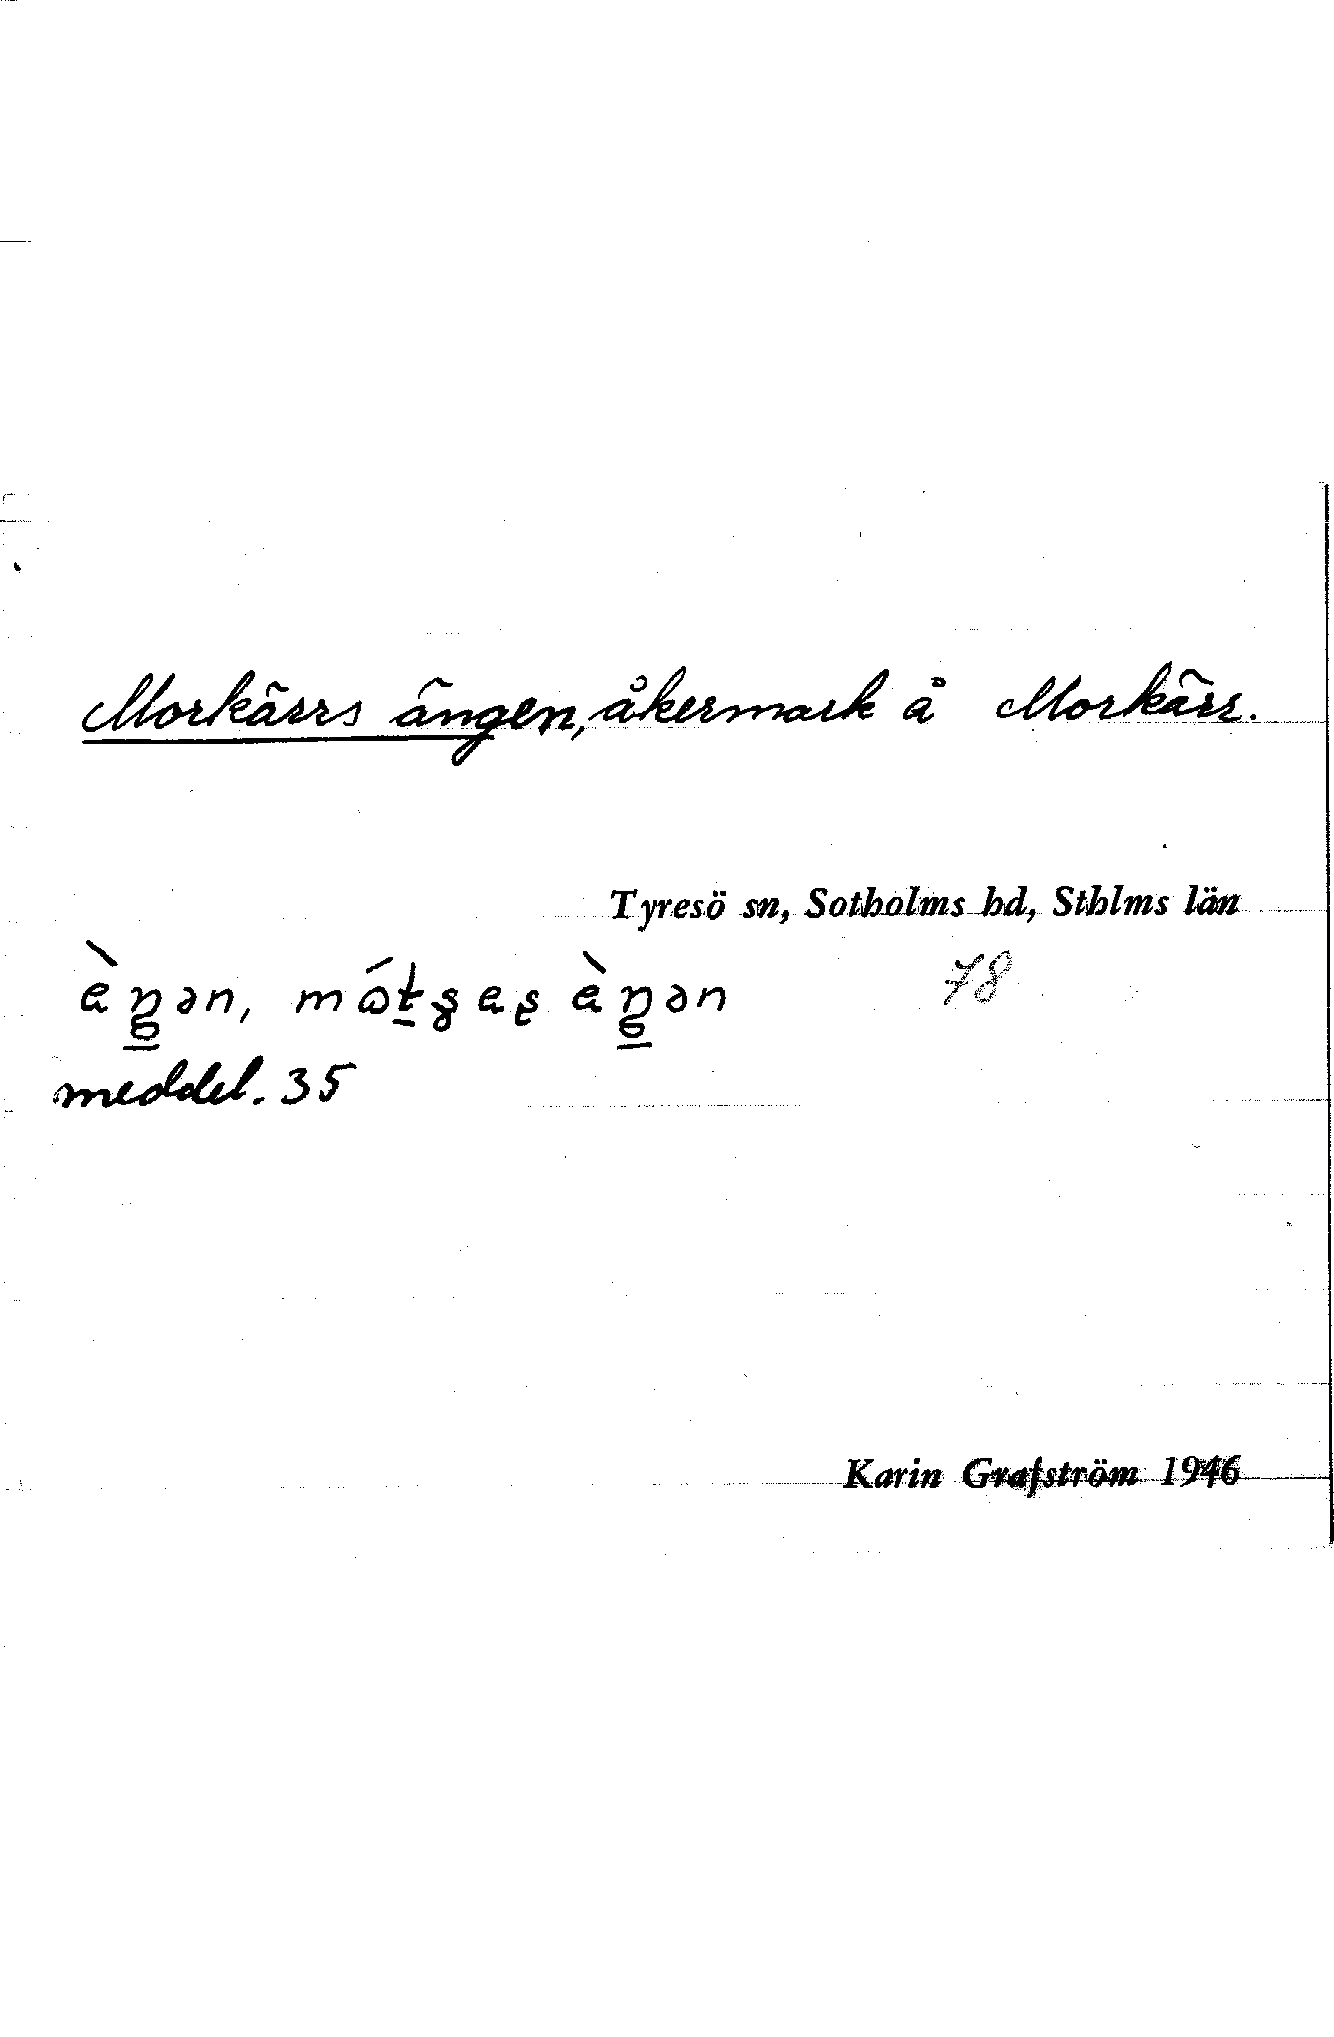 Morkärrs ängen, åkermark å Morkärr.
Tyresö sn, Sotholms hd, Sthlms län
78
meddel. 35
Karin Grafström 1946